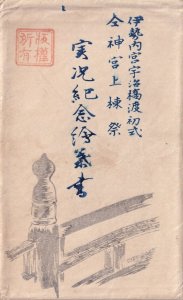 伊勢内宮宇治橋渡初式
仝神宮上棟祭
実況紀念繪葉書
版權
所有